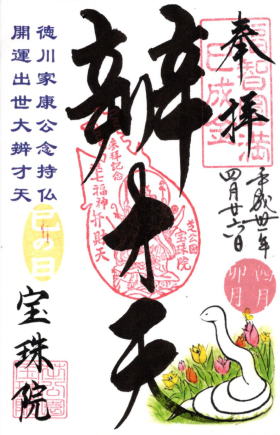 奉拝
平成丗一年
四月廿六日
四月
卯月
巳成金
辨才天
参拝記念
七福神
弁財天
芝公園
宝珠院
徳川家康公念持仏
開運出世大辨才天
巳の日
宝珠院